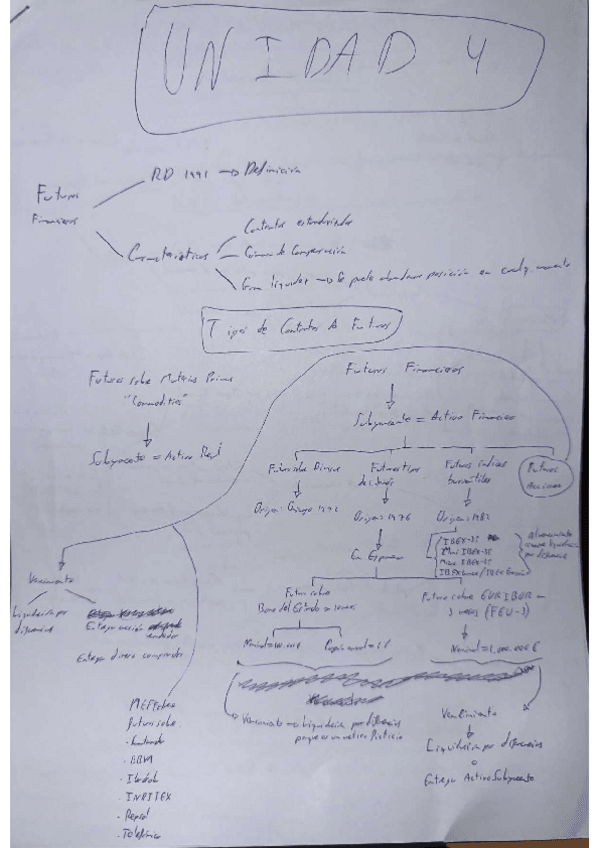 UNIDAD 4
RD 1991 → Definición
Futuros
Financieros
Características
Contratos estandarizados
Cámara de Compensación
Gran liquidez → Se puede abandonar posición en cualq. momento
Tipos de Contratos de Futuros
Futuros sobre Materias Primas
"Commodities"
Subyacente = Activo Real
Futuros Financieros
Subyacente = Activo Financiero
Futuros sobre Divisas
Origen: Chicago 1972
Futuros tipos
de interés
Origen: 1976
Futuros índices
bursátiles
Origen: 1982
Futuros
acciones
En España
IBEX-35
Mini IBEX-35
Micro IBEX-35
Al vencimiento
liquidación
por diferencias
Vencimiento
Liquidación por
diferencias
Entrega acción
vendedor
Entrega dinero comprador
Futuro sobre
Bono del Estado
Nominal = 100.000 €
Futuro sobre EURIBOR
3 meses
Nominal = 1.000.000 €
Vencimiento → Liquidación por diferencias
porque es un activo ficticio
Vencimiento
Liquidación por diferencias
o
Entrega Activo Subyacente
MEFF
Futuros sobre
· BBVA
· INDITEX
· Repsol
· Telefónica